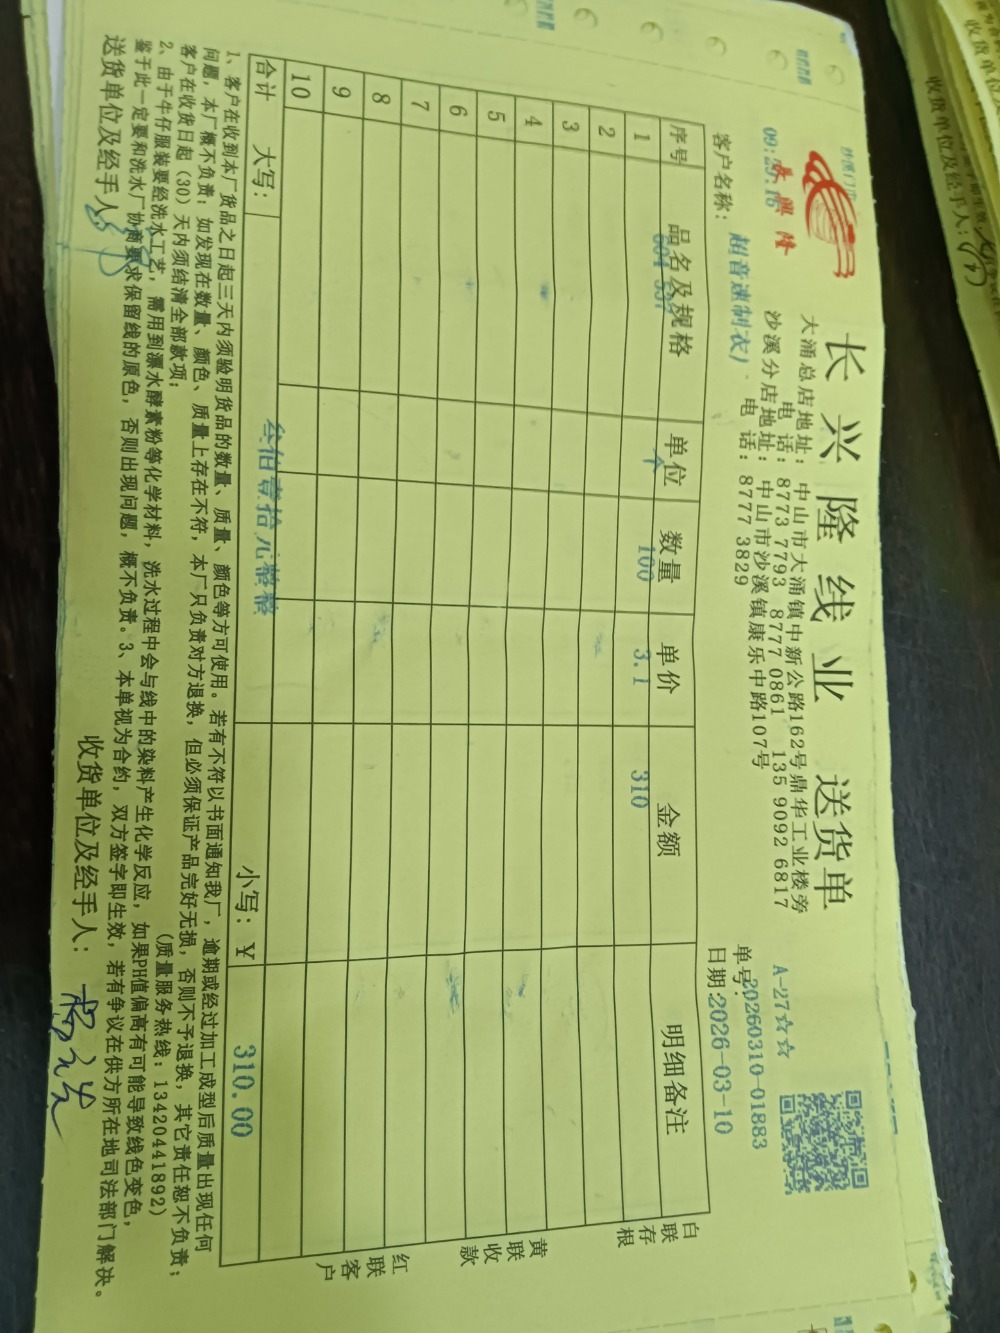 长兴隆线业 送货单
長興隆
沙溪门市
09:29:16
大涌总店地址：中山市大涌镇中新公路162号鼎华工业楼旁
电 话：8773 7793 8777 0861 135 9092 6817
沙溪分店地址：中山市沙溪镇康乐中路107号
电 话：8777 3829
A-27☆☆
单号：20260310-01883
客户名称：超音速制衣厂
日期：2026-03-10
序号 品名及规格 单位 数量 单价 金额 明细备注
1 604 337 个 100 3.1 310
2
3
4
5
6
7
8
9
10
合计 大写：叁佰壹拾元整 小写：¥ 310.00
白联存根
黄联收款
红联客户
1、客户在收到本厂货品之日起三天内须验明货品的数量、质量、颜色等方可使用。若有不符以书面通知我厂，逾期或经过加工成型后质量出现任何
问题，本厂概不负责；如发现在数量、颜色、质量上存在不符，本厂只负责对方退换，但必须保证产品完好无损，否则不予退换，其它责任恕不负责；
客户在收货日起（30）天内须结清全部款项；（质量服务热线：13420441892）
2、由于牛仔服装要经洗水工艺，需用到漂水酵素粉等化学材料，洗水过程中会与线中的染料产生化学反应，如果PH值偏高有可能导致线色变色，
鉴于此一定要和洗水厂协商要求保留线的原色，否则出现问题，概不负责。3、本单视为合约，双方签字即生效，若有争议在供方所在地司法部门解决。
送货单位及经手人：
收货单位及经手人：
收货单位及经手人：